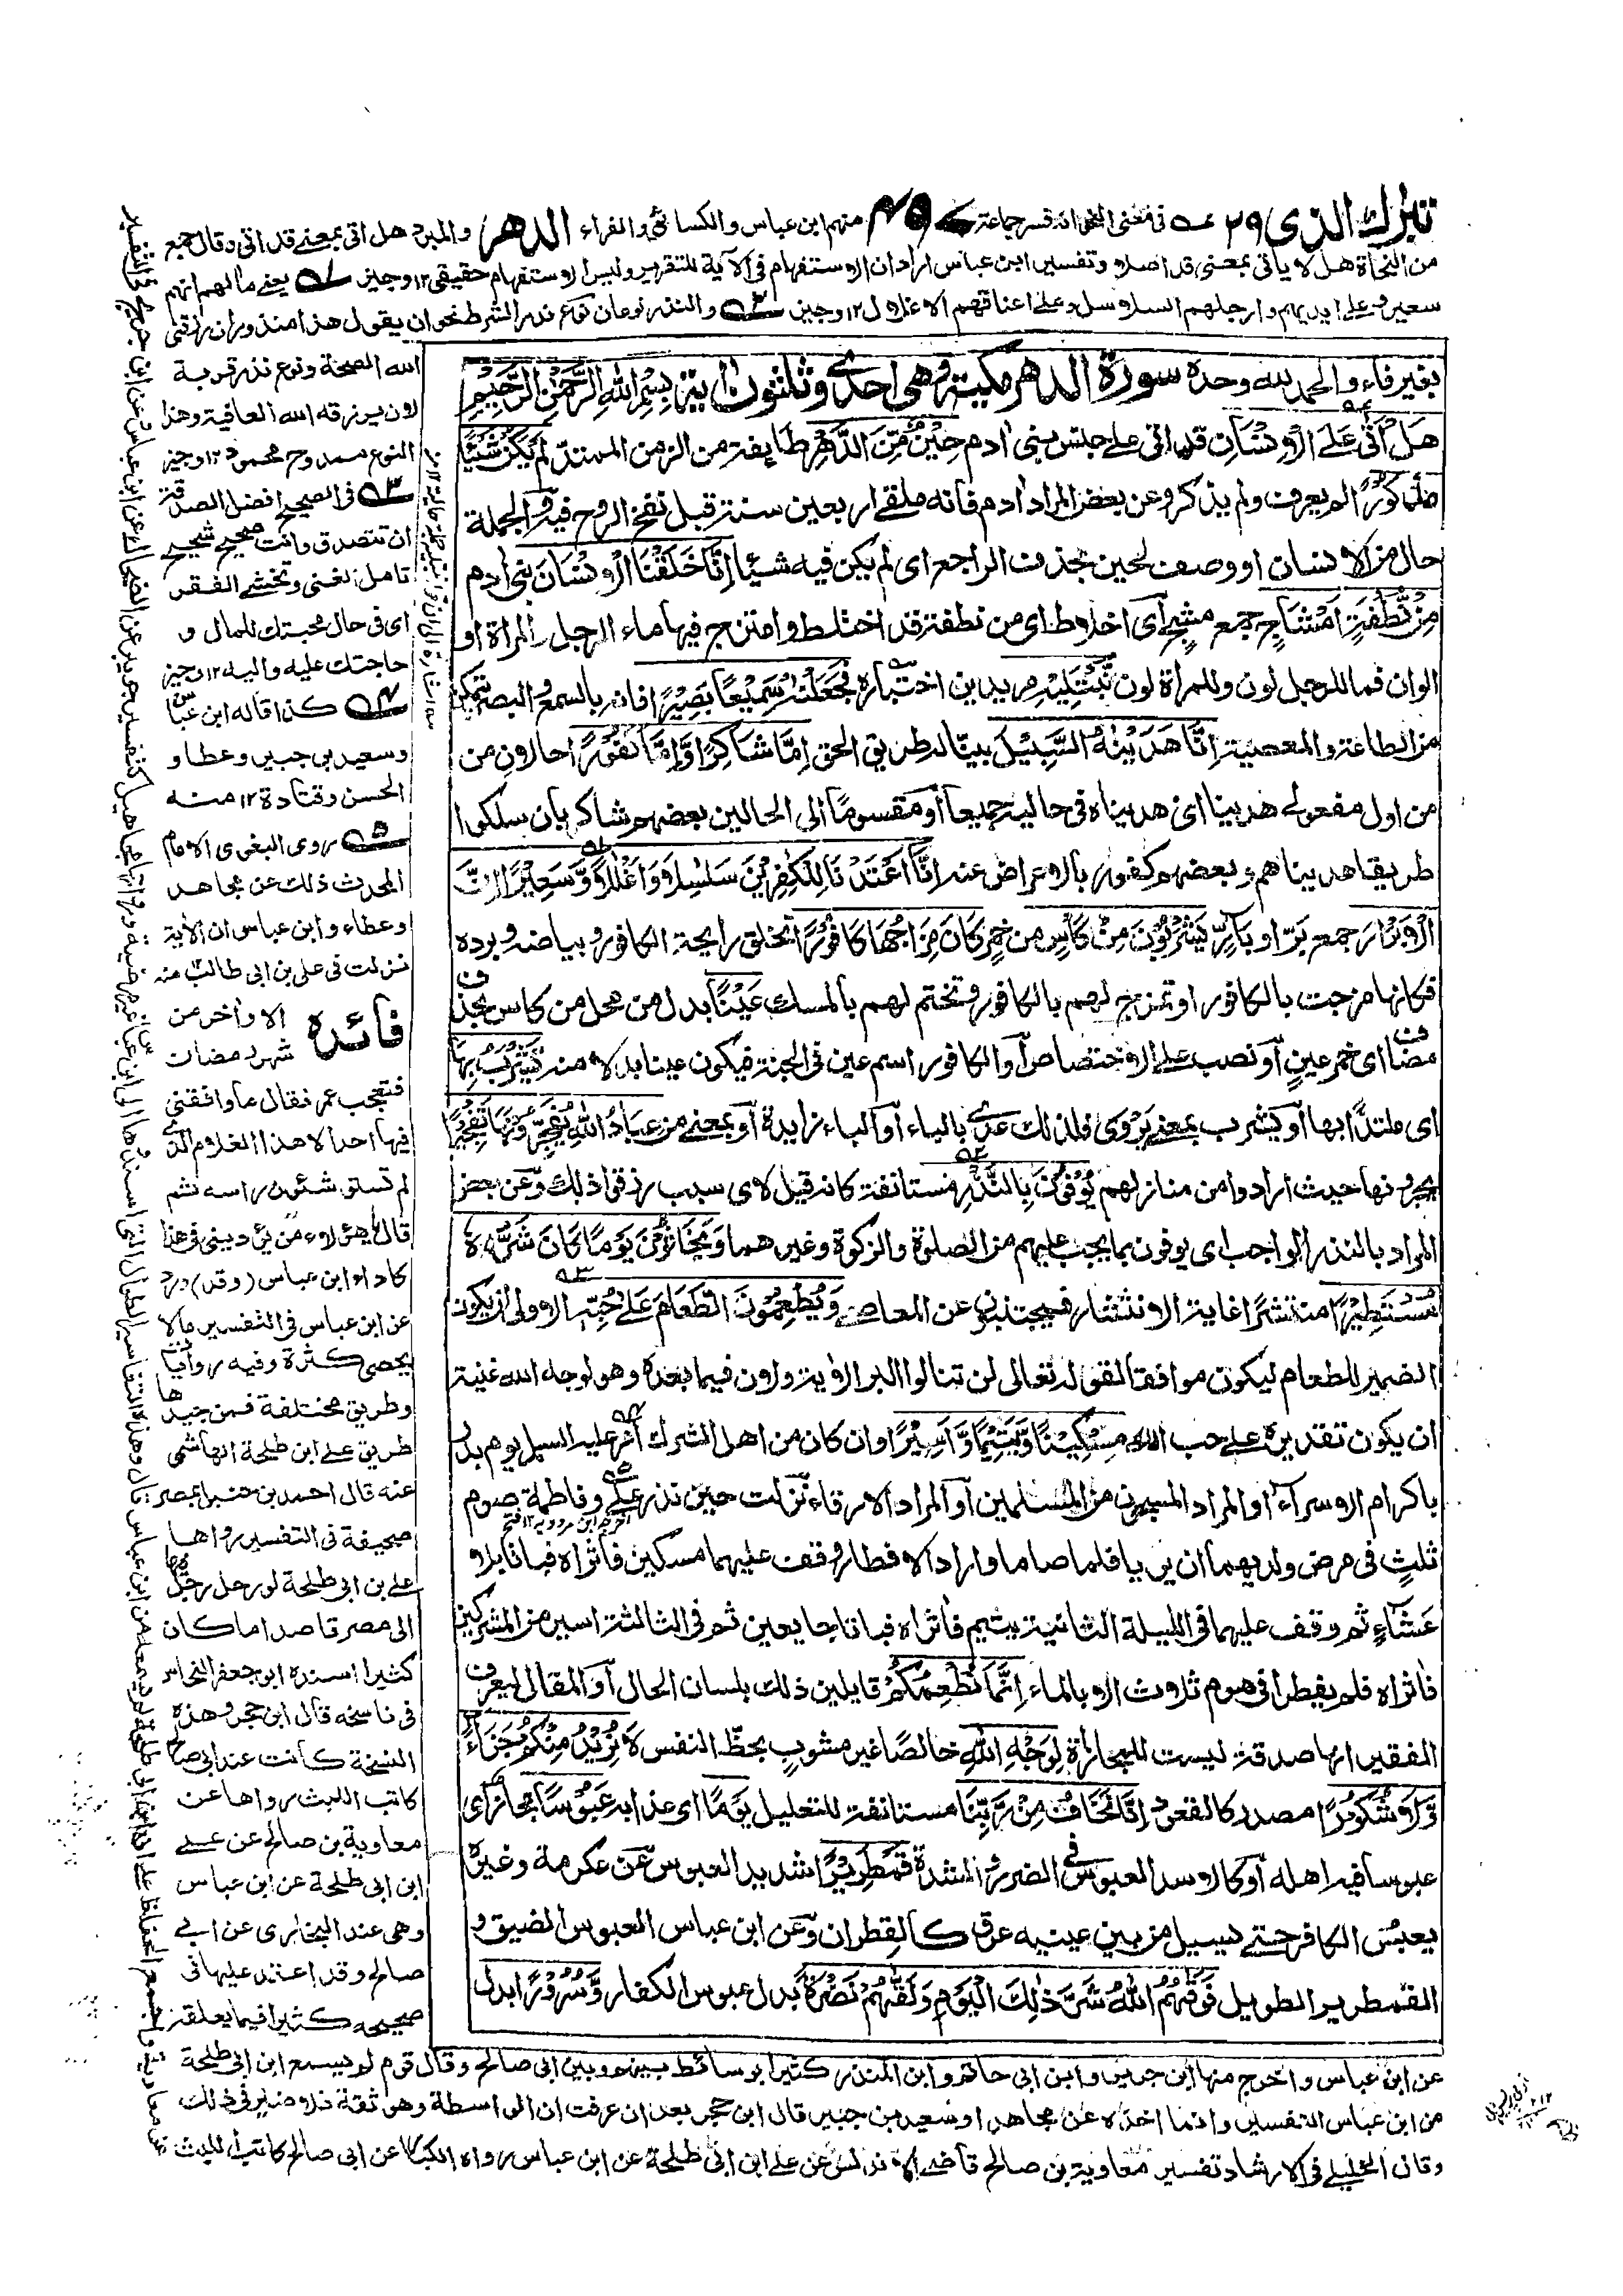 تبرك الذى ٢٩
الدهر
فى مغنى انه فسر جماعة منهم ابن عباس والكسائى والفراء والمبرد هل اتى بمعنے قد اتى وقال جمع
من النحاة هل لا ياتى بمعنى قد اصلا وتفسير ابن عباس اراد ان الاستفهام فى الآية للتقرير وليس الاستفهام حقيقى ١٢ وجيز يعنے مالهم انهم
سعير وعلى ايديهم وارجلهم السلاسل وعلے اعناقهم الاغلال ١٢ وجيز والنذر نوعان نوع نذر الشرط نحو ان يقول هذا منذور ان رزقنى
بغير فاء والحمد لله وحده سورة الدهر مكية وهى احدى وثلثون اية بِسْمِ اللهِ الرَّحْمٰنِ الرَّحِيْمِ
هَلْ اَتٰى عَلَى الْاِنْسَانِ قد اتى على جنس بنى ادم حِيْنٌ مِّنَ الدَّهْرِ طايفة من الزمن الممتدّ لَمْ يَكُنْ شَيْئًا
مَّذْكُوْرًا لم يعرف ولم يذكر وعن بعض المراد ادم فانه ملقے اربعين سنة قبل نفخ الروح فيه والجملة
حال من الانسان او وصف لحين بحذف الراجع اى لم يكن فيه شيئا اِنَّا خَلَقْنَا الْاِنْسَانَ بنى ادم
مِنْ نُّطْفَةٍ اَمْشَاجٍ جمع مشج اى اخلاط اى من نطفة قد اختلط وامتزج فيها ماء الرجل والمراة او
الوان فماللرجل لون وللمراة لون نَّبْتَلِيْهِ مريدين اختباره فَجَعَلْنٰهُ سَمِيْعًا بَصِيْرًا فانه بالسمع والبصر يتمكن
من الطاعة والمعصية اِنَّا هَدَيْنٰهُ السَّبِيْلَ بينا له طريق الحق اِمَّا شَاكِرًا وَّاِمَّا كَفُوْرًا حالان من
من اول مفعولى هدينا اى هديناه فى حاليه جميعا او مقسوما الى الحالين بعضهم شاكر بان سلكوا
طريقا هديناهم وبعضهم كفور بالاعراض عنه اِنَّا اَعْتَدْنَا لِلْكٰفِرِيْنَ سَلٰسِلَا وَاَغْلٰلًا وَّسَعِيْرًا اِنَّ
الْاَبْرَارَ جمع بَرّ او بارّ يَشْرَبُوْنَ مِنْ كَاْسٍ من خمر كَانَ مِزَاجُهَا كَافُوْرًا يخلق رايحة الكافور وبياضه وبرده
فكانها مزجت بالكافور او تمزج لهم بالكافور وتختم لهم بالمسك عَيْنًا بدل من محل من كاس بحذف
مضاف اى خمر عين او نصب على الاختصاص او الكافور اسم عين فى الجنة فيكون عينا بدلا منه يَّشْرَبُ بِهَا
اى ملتذا بها او يشرب بمعنى يروى فلذلك عدى بالباء او الباء زايدة او بمعنے من عِبَادُ اللهِ يُفَجِّرُوْنَهَا تَفْجِيْرًا
يجرونها حيث ارادوا من منازلهم يُوْفُوْنَ بِالنَّذْرِ مستانفة كانه قيل لاى سبب رزقوا ذلك وعن بعض
المراد بالنذر الواجب اى يوفون بما يجب عليهم من الصلوة والزكوة وغيرهما وَيَخَافُوْنَ يَوْمًا كَانَ شَرُّهٗ
مُسْتَطِيْرًا منتشرا غاية الانتشار فيجتنبون عن المعاصے وَيُطْعِمُوْنَ الطَّعَامَ عَلٰى حُبِّهٖ الاولى ان يكون
الضمير للطعام ليكون موافقا لقوله تعالى لن تنالوا البر الاية ولان فيما بعده وهو لوجه الله غنية
ان يكون تقديره على حب الله مِسْكِيْنًا وَّيَتِيْمًا وَّاَسِيْرًا وان كان من اهل الشرك امر عليه السلام يوم بدر
باكرام الاسراء او المراد المسجون من المسلمين او المراد الارقاء نزلت حين نذر علے وفاطمة صوم
اخرجه ابن مردويه ١٢ فتح
ثلث فى مرض ولديهما ان يريا فلما صاما وارادا لافطار وقف عليهما مسكين فاثراه فباتا بلا
عشاء ثم وقف عليهما فى الليلة الثانية يتيم فاثراه فباتا جايعين ثم فى الثالثة اسير من المشركين
فاثراه فلم يفطرا فى يوم ثلاث الا بالماء اِنَّمَا نُطْعِمُكُمْ قايلين ذلك بلسان الحال او المقال ليعرف
الفقير انها صدقة ليست للمجازاة لِوَجْهِ اللهِ خالصا غير مشوب بحظ النفس لَا نُرِيْدُ مِنْكُمْ جَزَاءً
وَّلَا شُكُوْرًا مصدر كالقعود اِنَّا نَخَافُ مِنْ رَّبِّنَا مستانفة للتعليل يَوْمًا اى عذابه عَبُوْسًا مجاز اى
عبوسا فيه اهله او كالاسد العبوس فى الضرر والشدة قَمْطَرِيْرًا شديد العبوس عن عكرمة وغيره
يعبس الكافر حتے يسيل من بين عينيه عرق كالقطران وعن ابن عباس العبوس الضيق و
القمطرير الطويل فَوَقٰهُمُ اللهُ شَرَّ ذٰلِكَ الْيَوْمِ وَلَقّٰهُمْ نَضْرَةً بدل عبوس الكفار وَّسُرُوْرًا بدل
الله الصحة ونوع نذر قربة
لان يرزقه الله العافية وهذا
النوع ممدوح محمود ١٢ وجيز
فى الصحيح افضل الصدقة
ان تتصدق وانت صحيح شحيح
تامل الغنى وتخشے الفقر
اى فى حال محبتك للمال و
حاجتك عليه واليه ١٢ وجيز
كذا قاله ابن عباس
وسعيد بن جبير وعطا و
الحسن وقتادة ١٢ منه
روى البغوى الامام
المحدث ذلك عن مجاهد
وعطاء وابن عباس ان الآية
نزلت فى على بن ابى طالب منه
فائدة الاواخر من
شهر رمضان
فتعجب عمر فقال ما وافقنى
فيها احد الا هذا الغلام الذى
لم تستو شئون راسه ثم
قال يا هؤلاء من يؤدينى فى هذا
كاداء ابن عباس (وقد) ورد
عن ابن عباس فى التفسير مالا
يحصى كثرة وفيه روايات
وطريق مختلفة فمن جيدها
طريق على ابن طلحة الهاشمى
عنه قال احمد بن حنبل بمصر
صحيفة فى التفسير رواها
على بن ابى طلحة لو رحل رجل
الى مصر قاصدا ما كان
كثيرا اسنده ابو جعفر النحاس
فى ناسخه قال ابن حجر وهذه
النسخة كانت عند ابى صالح
كاتب الليث رواها عن
معاوية بن صالح عن على
ابن ابى طلحة عن ابن عباس
وهى عند البخارى عن ابى
صالح وقد اعتمد عليها فى
صحيحه كثيرا فيما يعلقه
عن ابن عباس واخرج منها ابن جرير وابن ابى حاتم وابن المنذر كثيرا بوسائط بينهم وبين ابى صالح وقال قوم لم يسمع ابن ابى طلحة
من ابن عباس التفسير وانما اخذه عن مجاهد او سعيد بن جبير قال ابن حجر بعد ان عرفت ان الواسطة وهو ثقة فلا ضير فى ذلك
وقال الخليلى فى الارشاد تفسير معاوية بن صالح قاضى الاندلس عن على ابن ابى طلحة عن ابن عباس رواه الكبار عن ابى صالح كاتب الليث